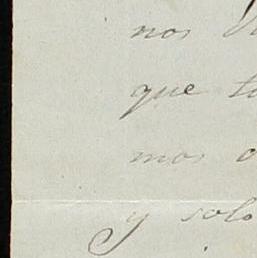 nos
que
mos
y solo